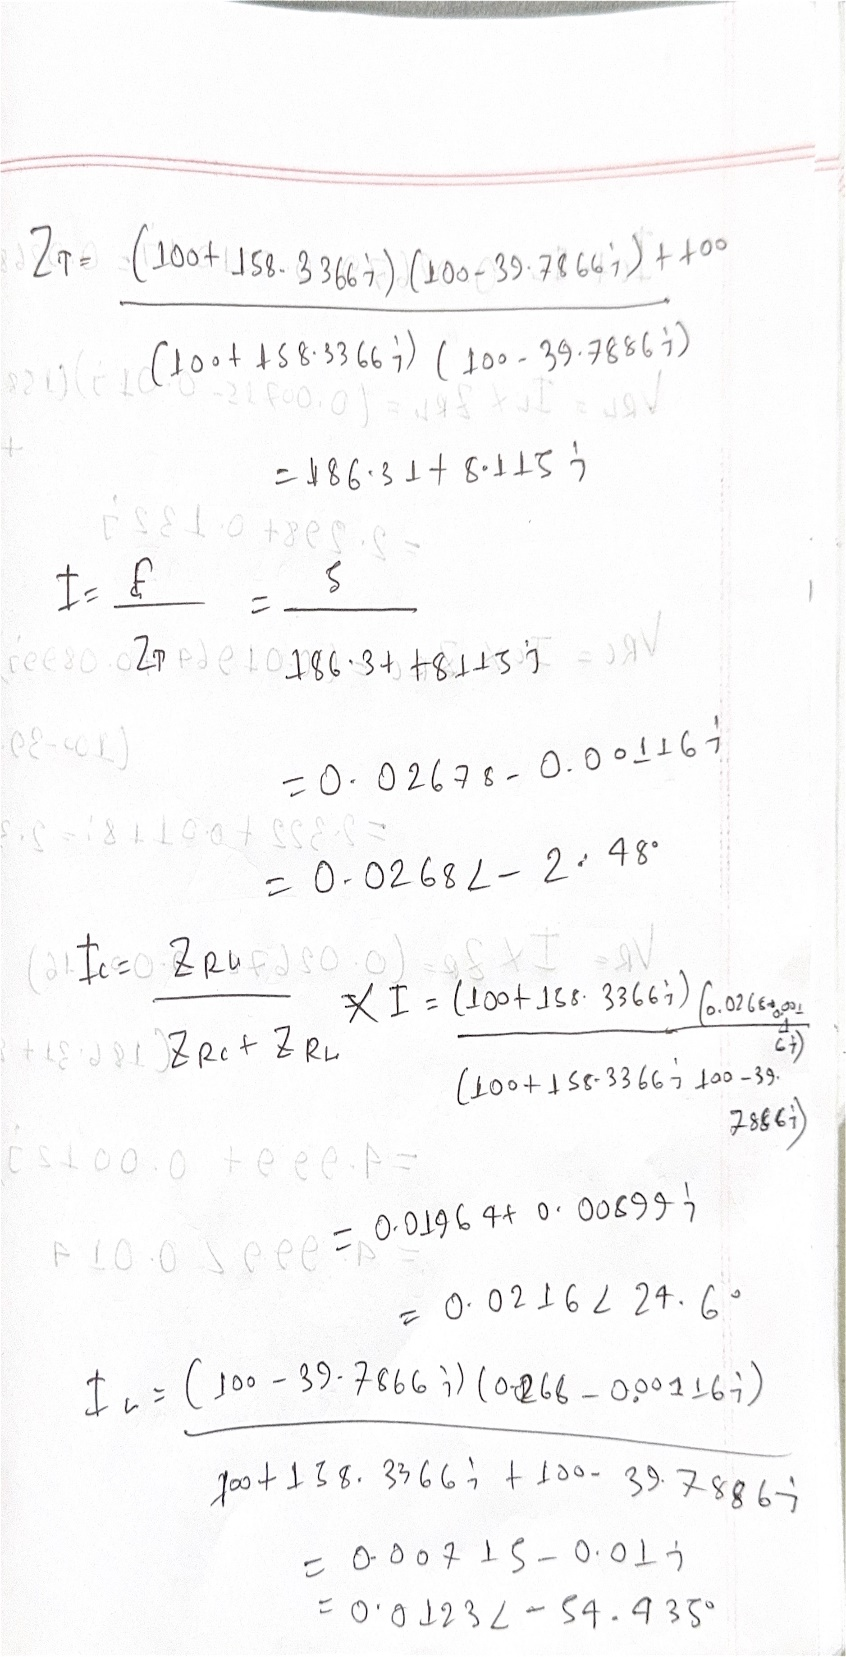 Z_T = (100+158.3366j)(100-39.7866j)+100
(100+158.3366j)(100-39.7886j)
=186.31+8.115j
I = E/Z_T = 5/186.31+8.115j
=0.02678-0.00116j
=0.0268∠-2.48°
I_C = Z_RL/Z_RC+Z_RL × I = (100+158.3366j)(0.0268+0.00116j)
(100+158.3366j 100-39.7886j)
= 0.01964+0.00899j
= 0.0216∠24.6°
I_L = (100-39.7866j)(0.0268-0.00116j)
100+158.3366j+100-39.7886j
= 0.00715-0.01j
= 0.0123∠-54.435°